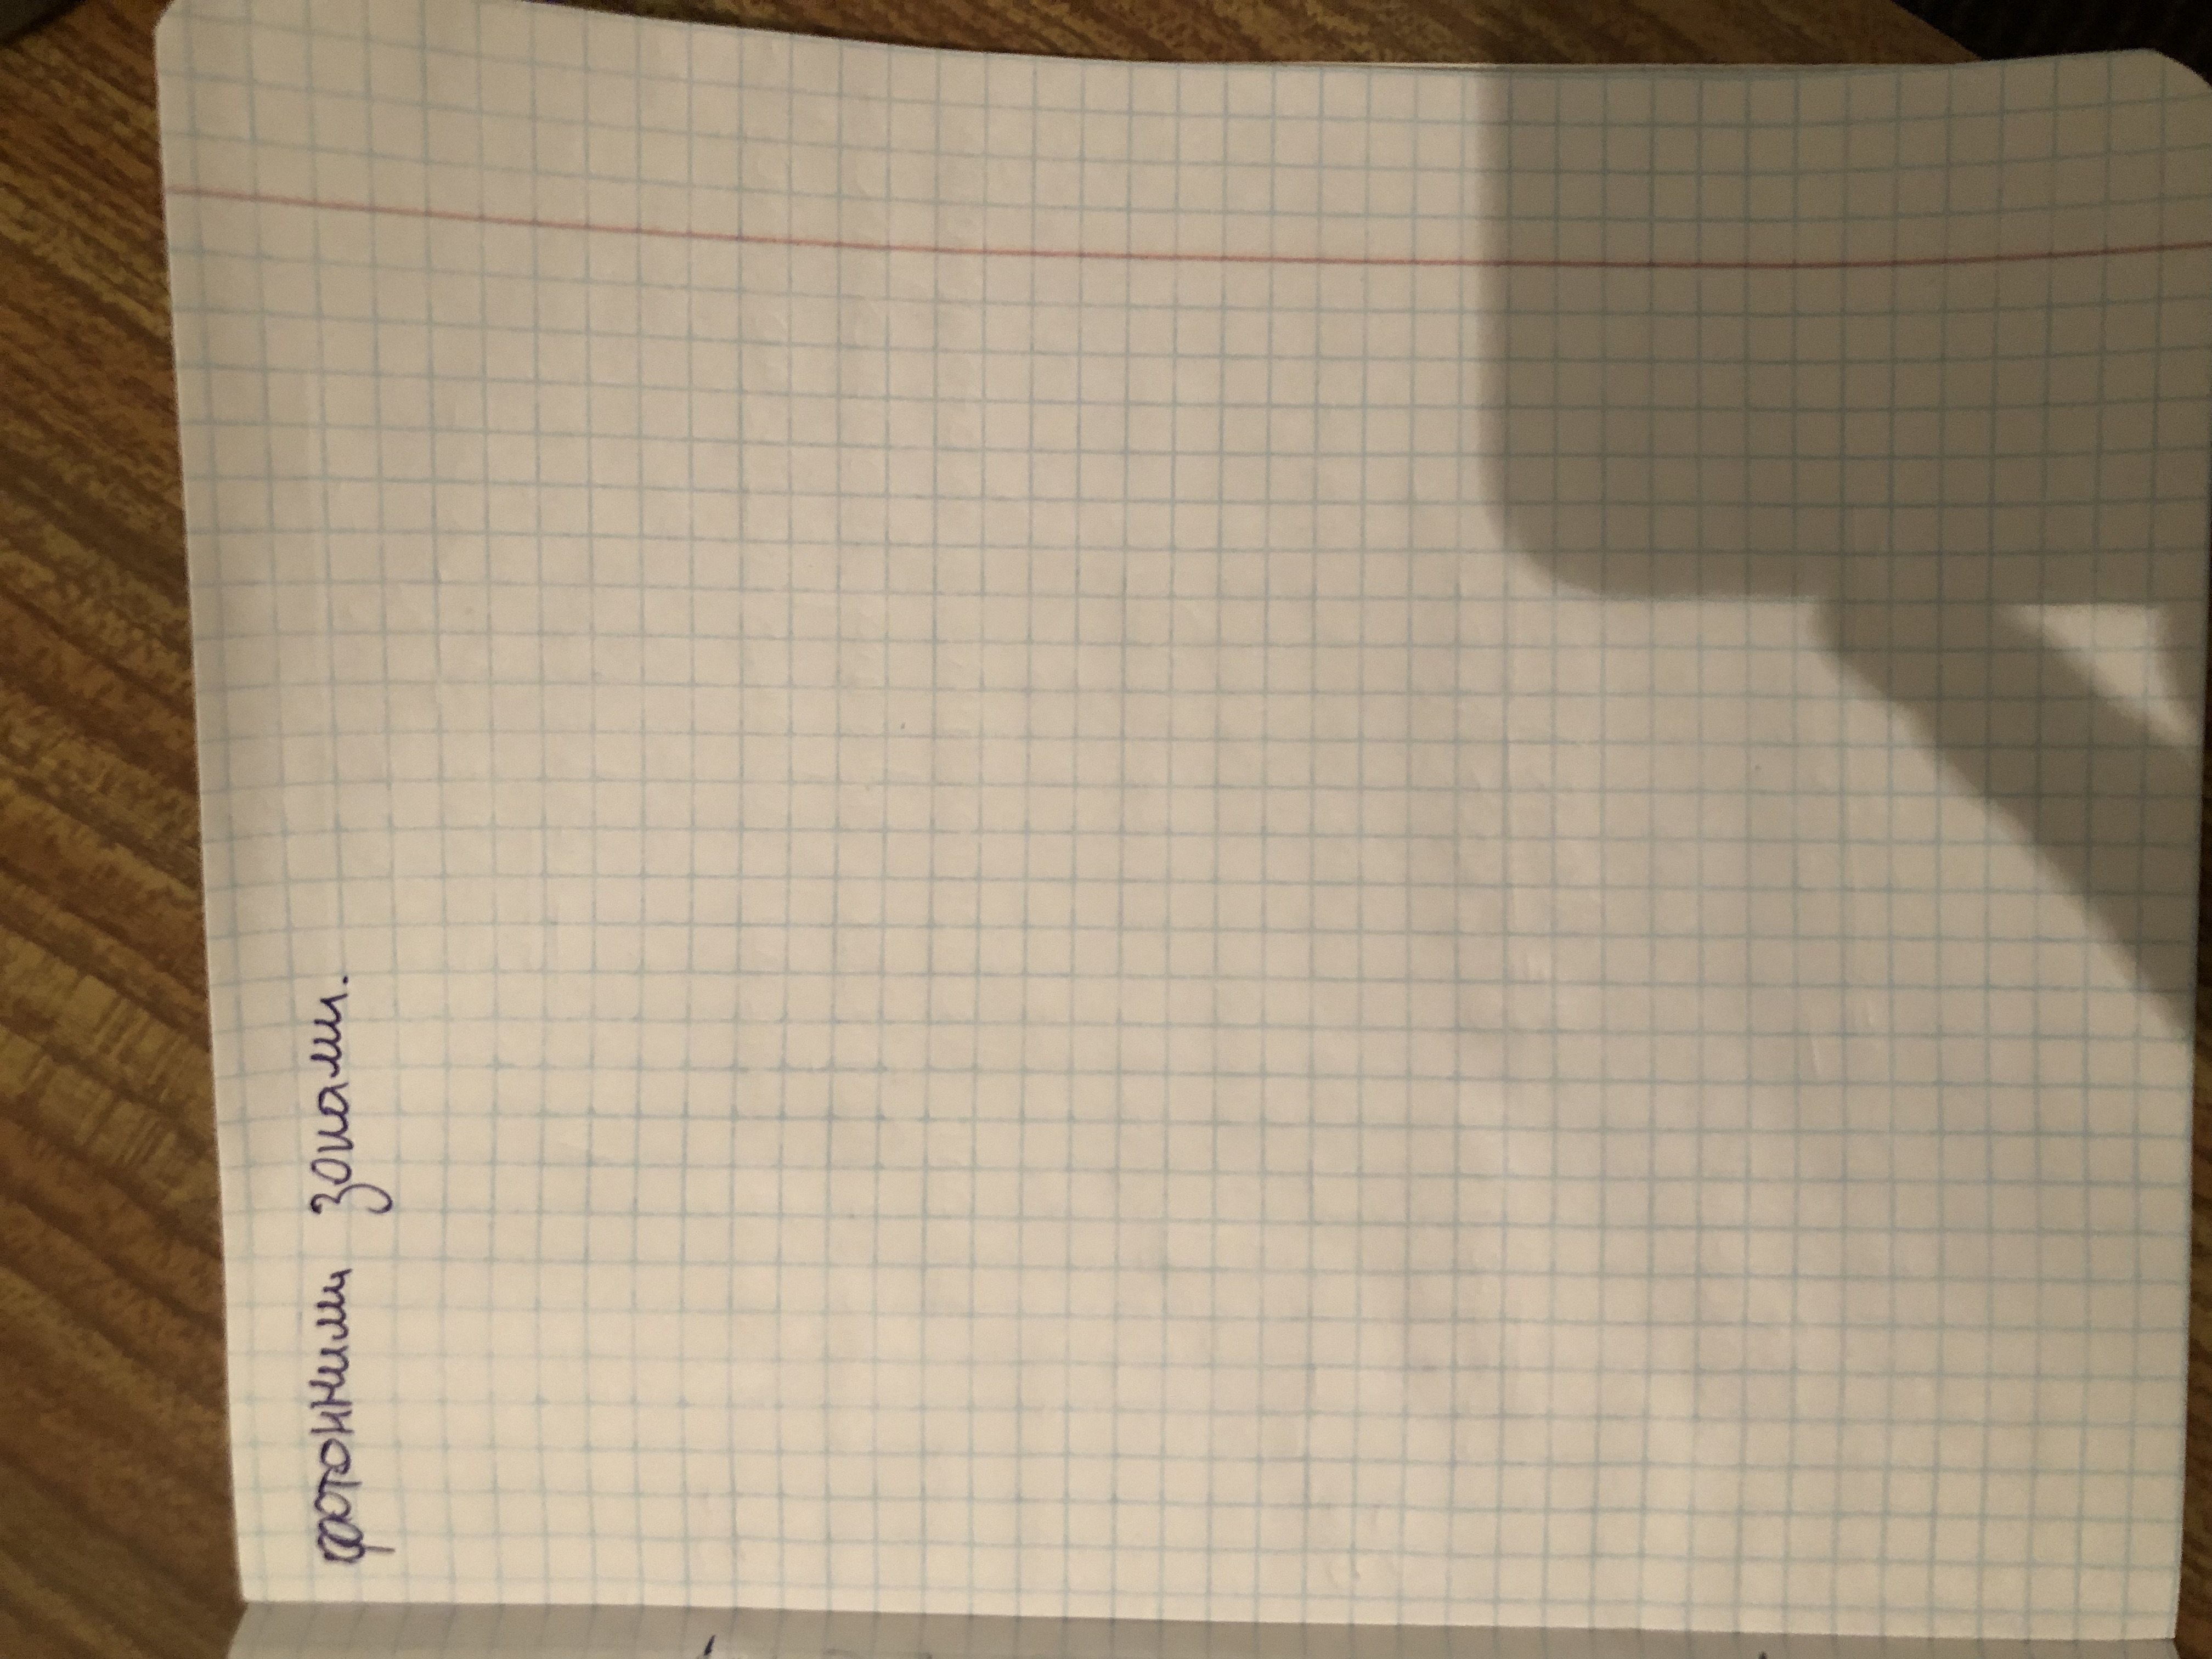 фотонними зонами.